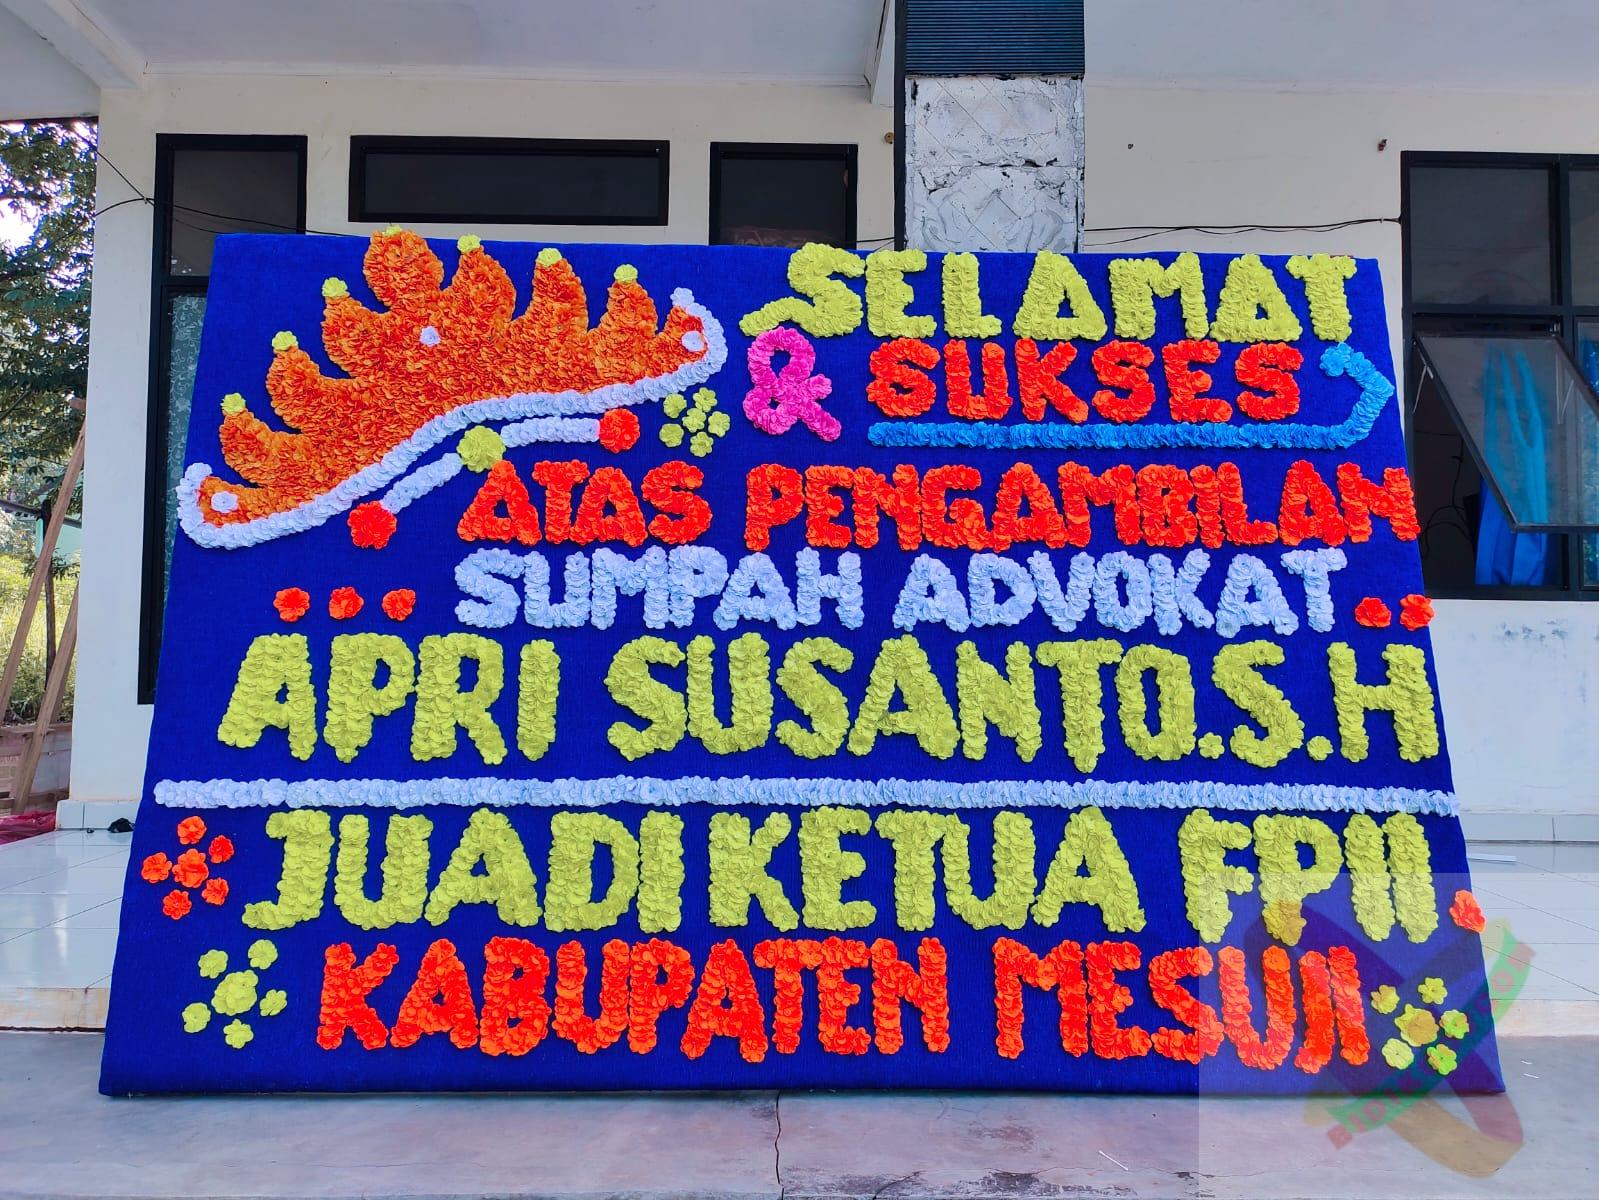 SELAMAT
& SUKSES
ATAS PENGAMBILAN
SUMPAH ADVOKAT
APRI SUSANTO.S.H
JUADI KETUA FPII
KABUPATEN MESUJI